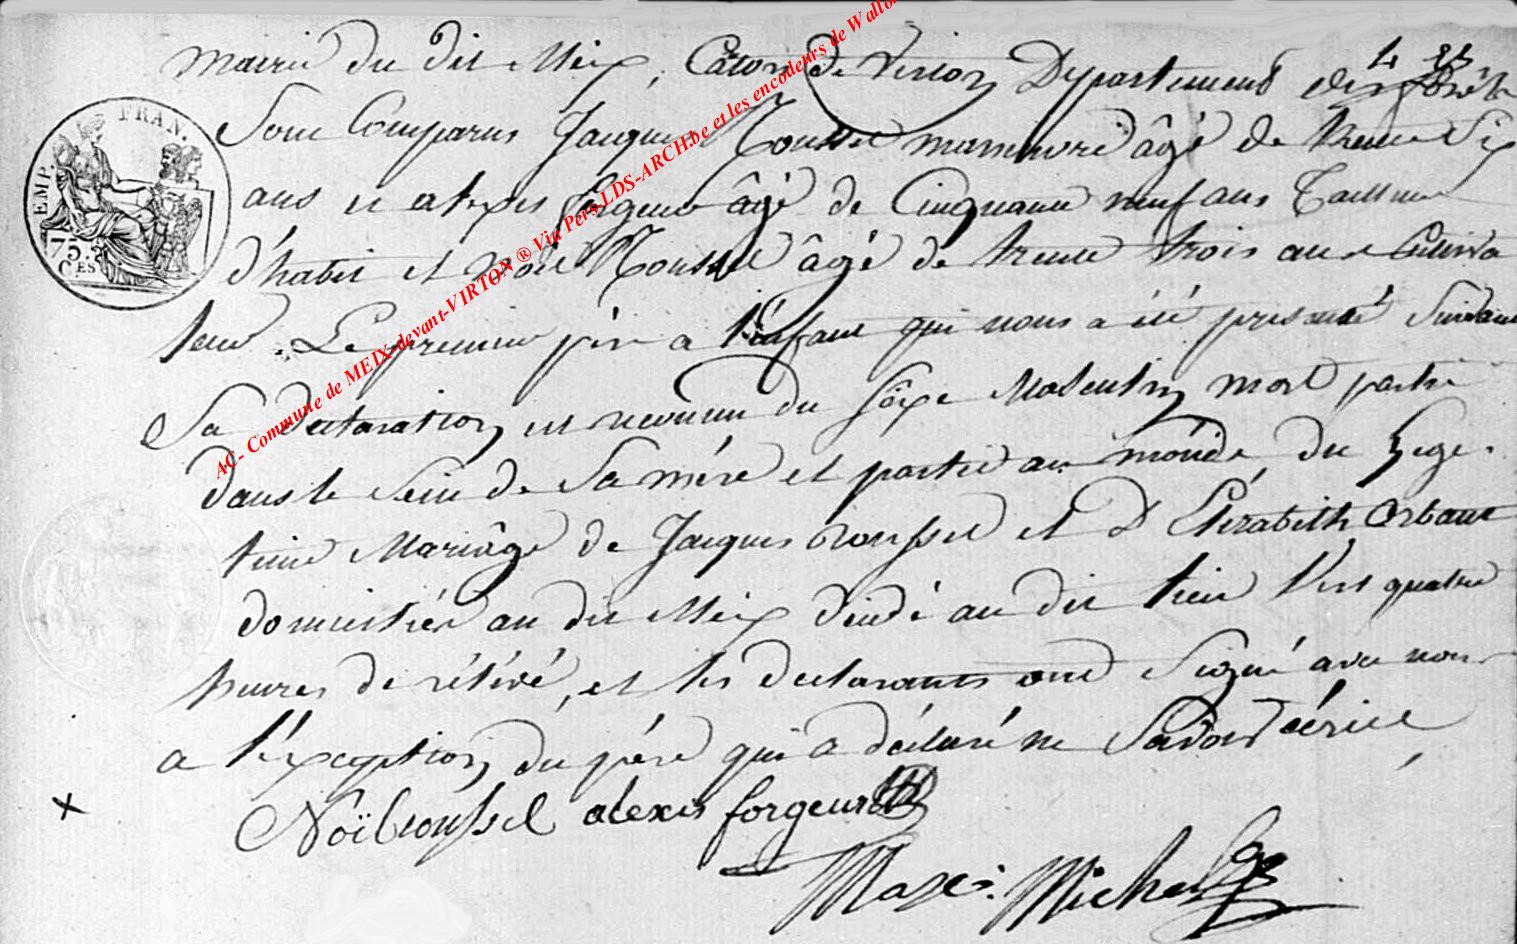 mairie du dit Meix, Caton de Virton Departement des forêts
Sont Comparus Jacques Roussel manoeuvre âgé de trente Six
ans et alexis forgeur âgé de Cinquante neuf ans Tailleur
d'habit et Noël Roussel âgé de trente trois ans Cultiva
teur. Le premier père a l'enfant qui nous a été presenté Suivant
Sa declaration est reconnu du sèxe Masculin mort partie
dans le Sein de Sa mère et partie au monde, du Legi
time Mariâge de Jacques roussel et d'Elizabeth Orban
domiciliés au dit Meix au dit lieu Vers quatre
heures de rélévé, et les declarants ont Signé avec nous
a l'éxception du père qui a déclaré ne Savoir écrire
Noël roussel alexis forgeur
Michel
EMP. FRAN.
75.
CES
AC- Commune de MEIX-devant-VIRTON ® Via Pers-LDS-ARCH.be et les encodeurs de Wallon